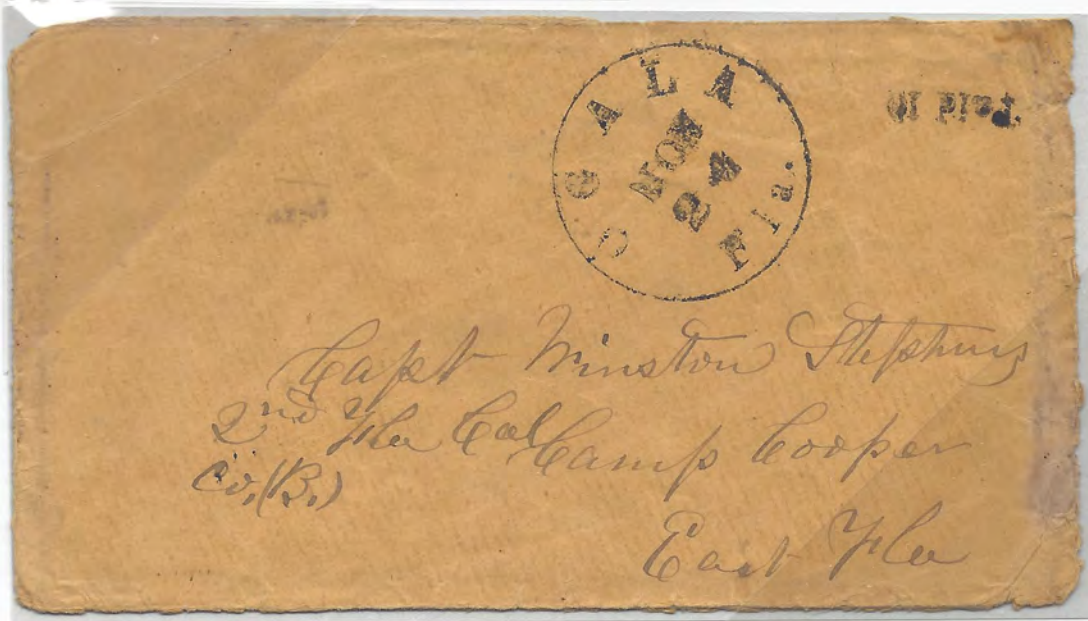 OCALA
NOV
24
Fla.
Paid 10
Capt Winston Stephens
2nd Fla Cal Camp Cooper
Co, (B.)
East Fla